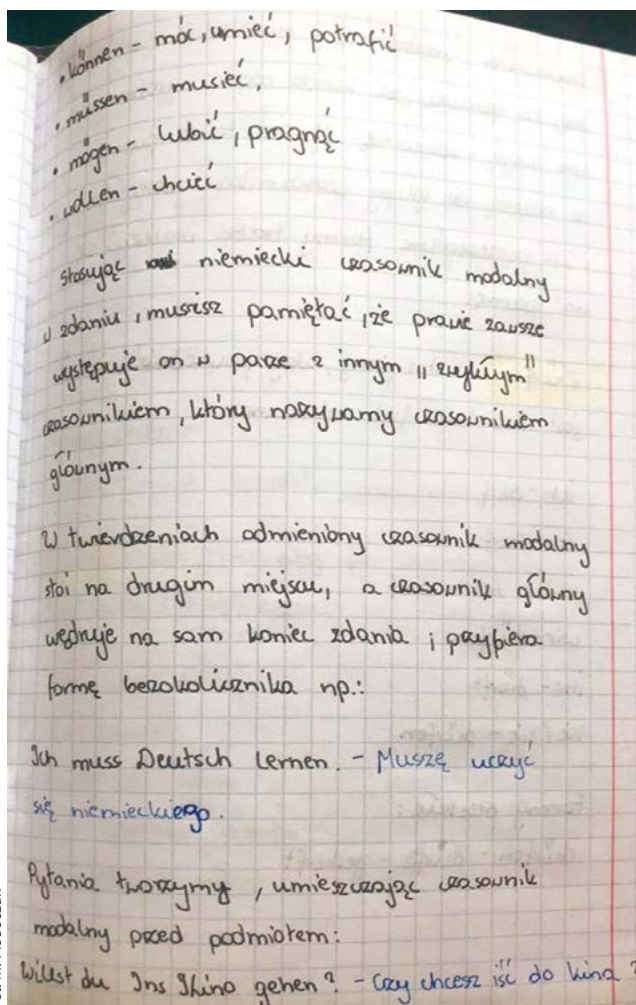 • können - móc, umieć, potrafić
• müssen - musieć,
• mögen - lubić, pragnąć
• wollen - chcieć
Stosując niemiecki czasownik modalny
w zdaniu, musisz pamiętać, że prawie zawsze
występuje on w parze z innym "zwykłym"
czasownikiem, który nazywamy czasownikiem
głównym.
W twierdzeniach odmieniony czasownik modalny
stoi na drugim miejscu, a czasownik główny
wędruje na sam koniec zdania i przybiera
formę bezokolicznika np.:
Ich muss Deutsch lernen. - Muszę uczyć
się niemieckiego.
Pytania tworzymy, umieszczając czasownik
modalny przed podmiotem:
Willst du Ins Kino gehen? - Czy chcesz iść do kina?